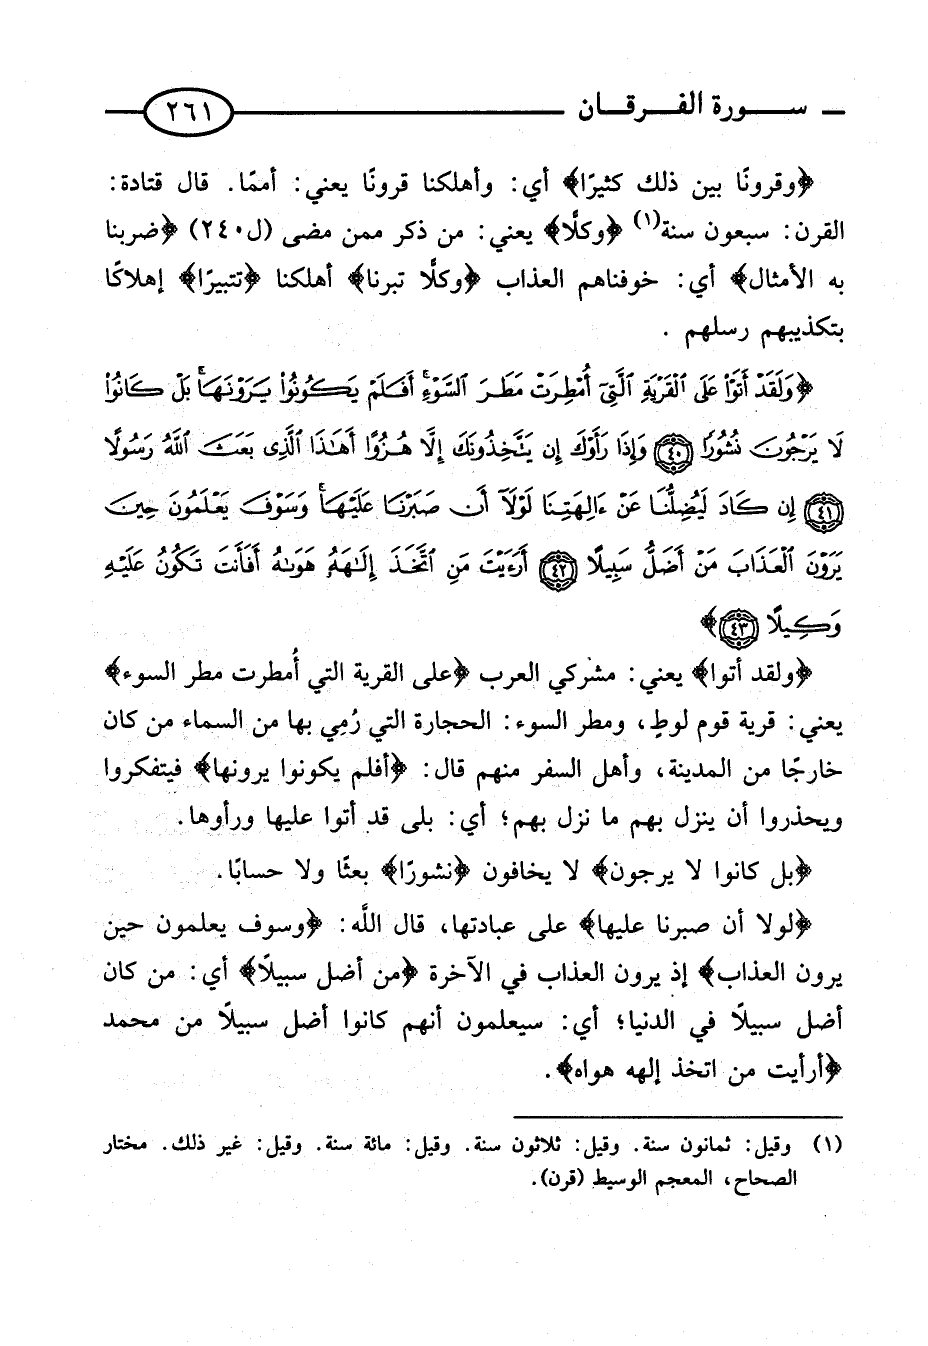 سورة الفرقان ٢٦١
﴿وقرونًا بين ذلك كثيرًا﴾ أي: وأهلكنا قرونًا يعني: أممًا. قال قتادة:
القرن: سبعون سنة(١) ﴿وكلًا﴾ يعني: من ذكر ممن مضى (ل٢٤٠) ﴿ضربنا
به الأمثال﴾ أي: خوفناهم العذاب ﴿وكلًا تبرنا﴾ أهلكنا ﴿تتبيرًا﴾ إهلاكًا
بتكذيبهم رسلهم .
﴿وَلَقَدْ أَتَوْا عَلَى ٱلْقَرْيَةِ ٱلَّتِىٓ أُمْطِرَتْ مَطَرَ ٱلسَّوْءِۚ أَفَلَمْ يَكُونُوا۟ يَرَوْنَهَاۚ بَلْ كَانُوا۟
لَا يَرْجُونَ نُشُورًا ٤٠ وَإِذَا رَأَوْكَ إِن يَتَّخِذُونَكَ إِلَّا هُزُوًا أَهَٰذَا ٱلَّذِى بَعَثَ ٱللَّهُ رَسُولًا
٤١ إِن كَادَ لَيُضِلُّنَا عَنْ ءَالِهَتِنَا لَوْلَآ أَن صَبَرْنَا عَلَيْهَاۚ وَسَوْفَ يَعْلَمُونَ حِينَ
يَرَوْنَ ٱلْعَذَابَ مَنْ أَضَلُّ سَبِيلًا ٤٢ أَرَءَيْتَ مَنِ ٱتَّخَذَ إِلَٰهَهُۥ هَوَىٰهُ أَفَأَنتَ تَكُونُ عَلَيْهِ
وَكِيلًا ٤٣﴾
﴿ولقد أتوا﴾ يعني: مشركي العرب ﴿على القرية التي أُمطرت مطر السوء﴾
يعني: قرية قوم لوطٍ، ومطر السوء: الحجارة التي رُمِي بها من السماء من كان
خارجًا من المدينة، وأهل السفر منهم قال: ﴿أفلم يكونوا يرونها﴾ فيتفكروا
ويحذروا أن ينزل بهم ما نزل بهم؛ أي: بلى قد أتوا عليها ورأوها.
﴿بل كانوا لا يرجون﴾ لا يخافون ﴿نشورًا﴾ بعثًا ولا حسابًا.
﴿لولا أن صبرنا عليها﴾ على عبادتها، قال الله: ﴿وسوف يعلمون حين
يرون العذاب﴾ إذ يرون العذاب في الآخرة ﴿من أضل سبيلًا﴾ أي: من كان
أضل سبيلًا في الدنيا؛ أي: سيعلمون أنهم كانوا أضل سبيلًا من محمد
﴿أرأيت من اتخذ إلهه هواه﴾.
(١) وقيل: ثمانون سنة. وقيل: ثلاثون سنة. وقيل: مائة سنة. وقيل: غير ذلك. مختار
الصحاح، المعجم الوسيط (قرن).